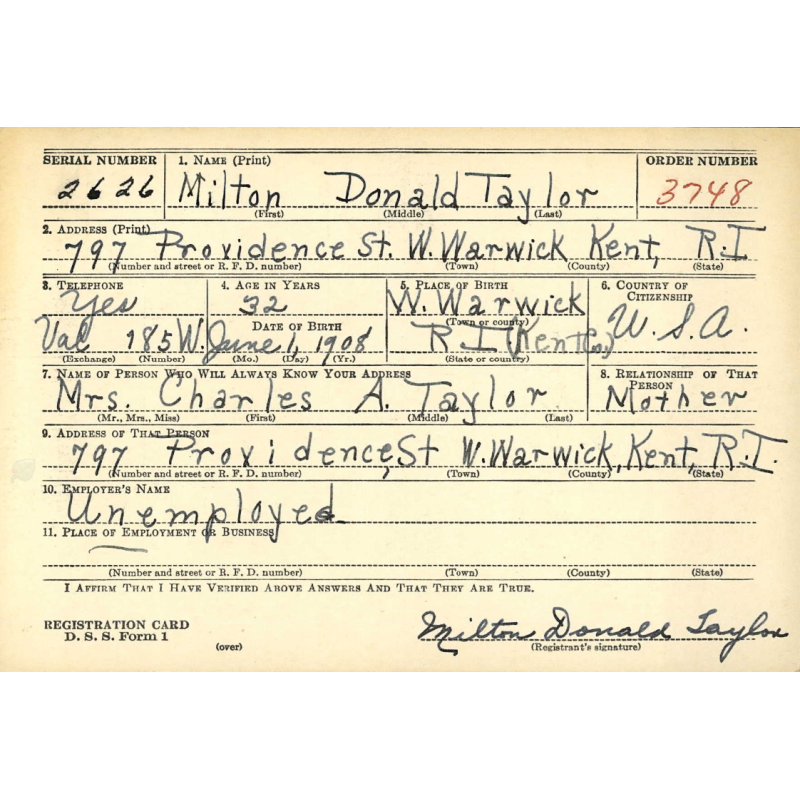 SERIAL NUMBER 1. NAME (Print) ORDER NUMBER
2626 Milton Donald Taylor 3748
(First) (Middle) (Last)
2. ADDRESS (Print)
797 Providence St. W. Warwick Kent, R.I
(Number and street or R. F. D. number) (Town) (County) (State)
3. TELEPHONE 4. AGE IN YEARS 5. PLACE OF BIRTH 6. COUNTRY OF CITIZENSHIP
Yes 32 W. Warwick
DATE OF BIRTH (Town or county) U.S.A.
Val 185W. June 1, 1908 R I (Kent Co.)
(Exchange) (Number) (Mo.) (Day) (Yr.) (State or country)
7. NAME OF PERSON WHO WILL ALWAYS KNOW YOUR ADDRESS 8. RELATIONSHIP OF THAT PERSON
Mrs. Charles A. Taylor Mother
(Mr., Mrs., Miss) (First) (Middle) (Last)
9. ADDRESS OF THAT PERSON
797 Providence, St W. Warwick, Kent, R.I.
(Number and street or R. F. D. number) (Town) (County) (State)
10. EMPLOYER'S NAME
Unemployed
11. PLACE OF EMPLOYMENT OR BUSINESS
(Number and street or R. F. D. number) (Town) (County) (State)
I AFFIRM THAT I HAVE VERIFIED ABOVE ANSWERS AND THAT THEY ARE TRUE.
REGISTRATION CARD
D. S. S. Form 1 Milton Donald Taylor
(over) (Registrant's signature)